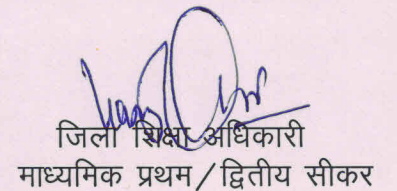 जिला शिक्षा अधिकारी
माध्यमिक प्रथम/द्वितीय सीकर